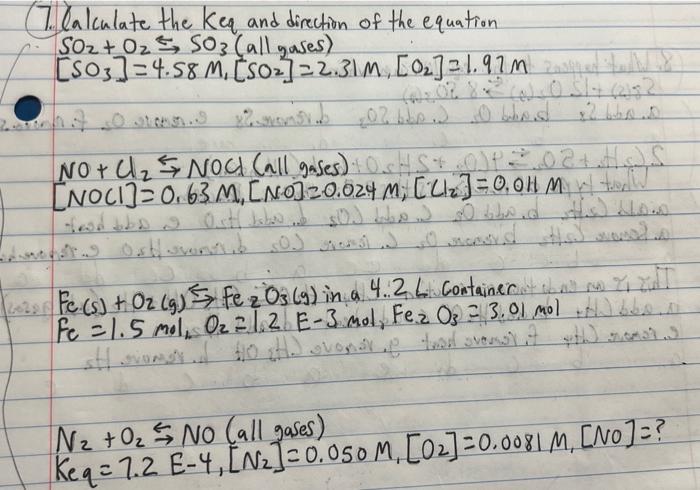 7. Calculate the Keq and direction of the equation
SO2 + O2 ⇆ SO3 (all gases)
[SO3] = 4.58 M, [SO2] = 2.31 M, [O2] = 1.97 M
NO + Cl2 ⇆ NOCl (all gases)
[NOCl] = 0.63 M, [NO] = 0.024 M, [Cl2] = 0.011 M
Fe (s) + O2 (g) ⇆ Fe2O3 (g) in a 4.2 L container
Fe = 1.5 mol, O2 = 1.2 E-3 mol, Fe2O3 = 3.01 mol
N2 + O2 ⇆ NO (all gases)
Keq = 7.2 E-4, [N2] = 0.050 M, [O2] = 0.0081 M, [NO] = ?